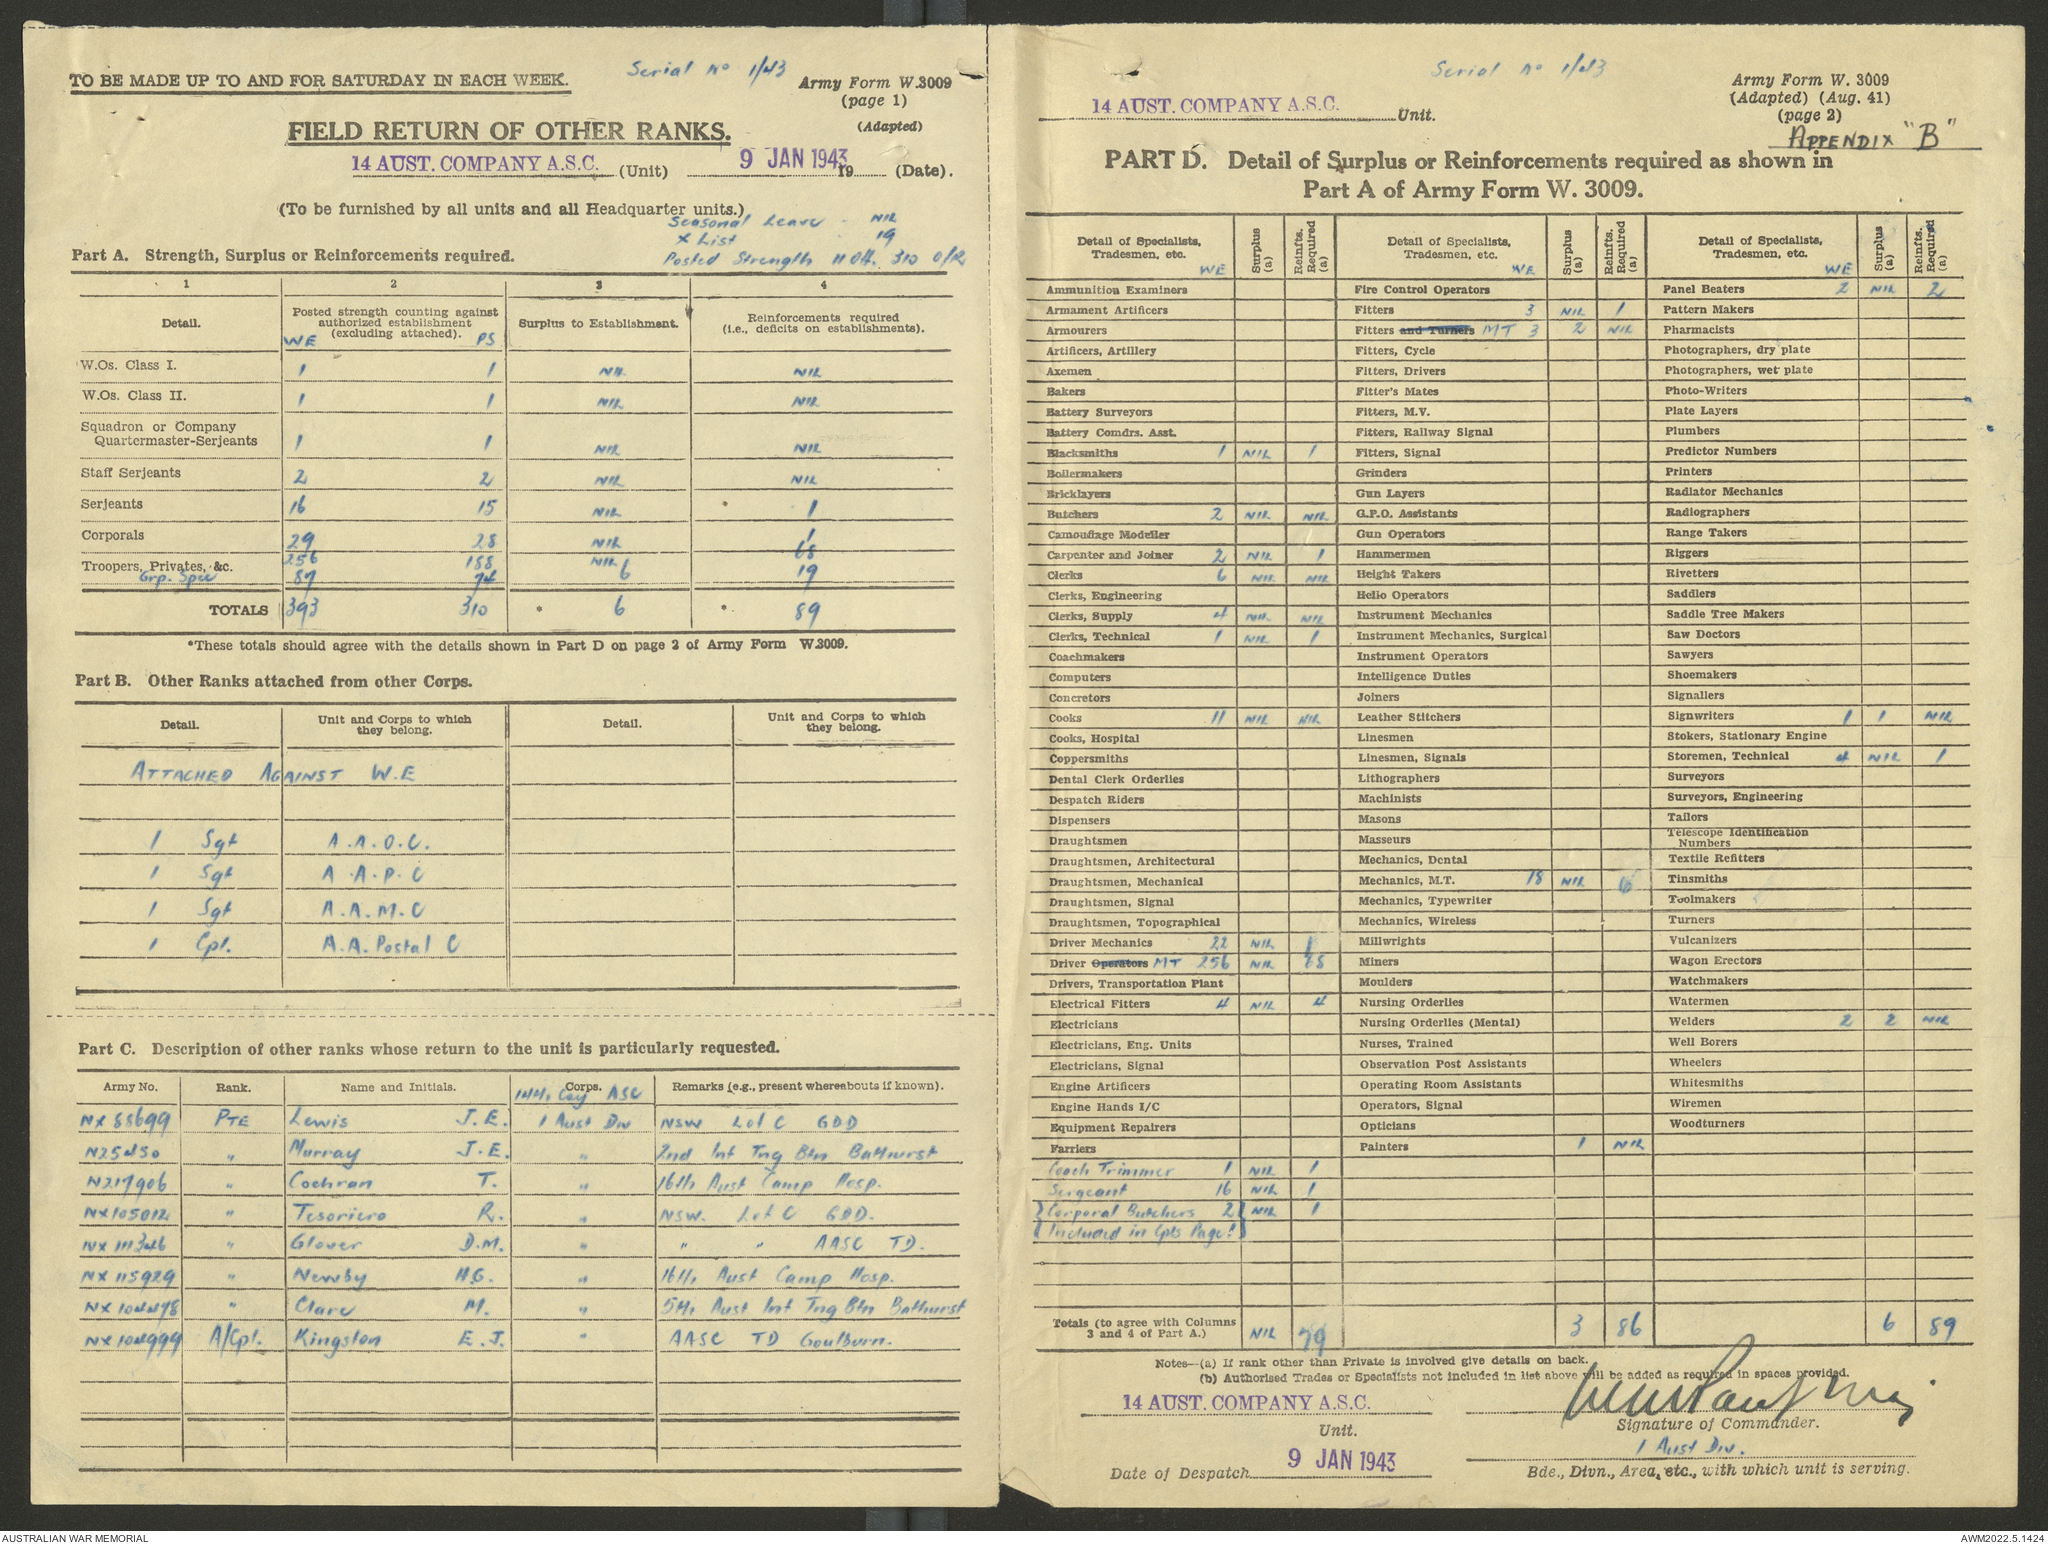 Serial No 1/43
TO BE MADE UP TO AND FOR SATURDAY IN EACH WEEK.
Army Form W.3009
(page 1)
(Adapted)
FIELD RETURN OF OTHER RANKS.
14 AUST. COMPANY A.S.C. (Unit) 9 JAN 1943 19 (Date).
(To be furnished by all units and all Headquarter units.)
Seasonal Leave - NIL
X List 19
Posted Strength 11 Off. 310 O/R
Part A. Strength, Surplus or Reinforcements required.
1 2 3 4
Detail. Posted strength counting against authorized establishment (excluding attached). Surplus to Establishment. Reinforcements required (i.e., deficits on establishments).
WE PS
W.Os. Class I. 1 1 NIL NIL
W.Os. Class II. 1 1 NIL NIL
Squadron or Company
Quartermaster-Serjeants 1 1 NIL NIL
Staff Serjeants 2 2 NIL NIL
Serjeants 16 15 NIL 1
Corporals 29 28 NIL 1
Troopers, Privates, &c. 256 188 NIL 68
Grp. Spec 87 74 6 19
TOTALS 393 310 * 6 * 89
*These totals should agree with the details shown in Part D on page 2 of Army Form W.3009.
Part B. Other Ranks attached from other Corps.
Detail. Unit and Corps to which they belong. Detail. Unit and Corps to which they belong.
ATTACHED AGAINST W.E
1 Sgt A.A.O.C.
1 Sgt A.A.P.C
1 Sgt A.A.M.C
1 Cpl. A.A. Postal C
Part C. Description of other ranks whose return to the unit is particularly requested.
Army No. Rank. Name and Initials. Corps. Remarks (e.g., present whereabouts if known).
14th Coy ASC
NX88699 PTE Lewis J.E. 1 Aust Div NSW L of C GDD
N25430 " Murray J.E. " 2nd Inf Tng Btn Bathurst
N217906 " Cochran T. " 16th Aust Camp Hosp.
NX105012 " Tesoriero R. " NSW. L of C GDD.
NX111346 " Glover D.M. " " " AASC TD.
NX115929 " Newby H.G. " 16th Aust Camp Hosp.
NX104478 " Clare M. " 5th Aust Inf Tng Btn Bathurst
NX104999 A/Cpl. Kingston E.J. " AASC TD Goulburn.
Serial No 1/43
14 AUST. COMPANY A.S.C. Unit.
Army Form W. 3009
(Adapted) (Aug. 41)
(page 2)
APPENDIX "B"
PART D. Detail of Surplus or Reinforcements required as shown in
Part A of Army Form W. 3009.
Detail of Specialists, Tradesmen, etc. WE Surplus (a) Reinfts. Required (a)
Ammunition Examiners
Armament Artificers
Armourers
Artificers, Artillery
Axemen
Bakers
Battery Surveyors
Battery Comdrs. Asst.
Blacksmiths 1 NIL 1
Boilermakers
Bricklayers
Butchers 2 NIL NIL
Camouflage Modeller
Carpenter and Joiner 2 NIL 1
Clerks 6 NIL NIL
Clerks, Engineering
Clerks, Supply 4 NIL NIL
Clerks, Technical 1 NIL 1
Coachmakers
Computers
Concretors
Cooks 11 NIL NIL
Cooks, Hospital
Coppersmiths
Dental Clerk Orderlies
Despatch Riders
Dispensers
Draughtsmen
Draughtsmen, Architectural
Draughtsmen, Mechanical
Draughtsmen, Signal
Draughtsmen, Topographical
Driver Mechanics 22 NIL 1
Driver Operators MT 256 NIL 68
Drivers, Transportation Plant
Electrical Fitters 4 NIL 4
Electricians
Electricians, Eng. Units
Electricians, Signal
Engine Artificers
Engine Hands I/C
Equipment Repairers
Farriers
Coach Trimmer 1 NIL 1
Sergeant 16 NIL 1
Corporal Butchers 2 NIL 1
Included in Cpls Page 1
Totals (to agree with Columns 3 and 4 of Part A.) NIL 79
Detail of Specialists, Tradesmen, etc. WE Surplus (a) Reinfts. Required (a)
Fire Control Operators
Fitters 3 NIL 1
Fitters and Turners MT 3 2 NIL
Fitters, Cycle
Fitters, Drivers
Fitter's Mates
Fitters, M.V.
Fitters, Railway Signal
Fitters, Signal
Grinders
Gun Layers
G.P.O. Assistants
Gun Operators
Hammermen
Height Takers
Helio Operators
Instrument Mechanics
Instrument Mechanics, Surgical
Instrument Operators
Intelligence Duties
Joiners
Leather Stitchers
Linesmen
Linesmen, Signals
Lithographers
Machinists
Masons
Masseurs
Mechanics, Dental
Mechanics, M.T. 18 NIL
Mechanics, Typewriter
Mechanics, Wireless
Millwrights
Miners
Moulders
Nursing Orderlies
Nursing Orderlies (Mental)
Nurses, Trained
Observation Post Assistants
Operating Room Assistants
Operators, Signal
Opticians
Painters 1 NIL
3 86
Detail of Specialists, Tradesmen, etc. WE Surplus (a) Reinfts. Required (a)
Panel Beaters 2 NIL 2
Pattern Makers
Pharmacists
Photographers, dry plate
Photographers, wet plate
Photo-Writers
Plate Layers
Plumbers
Predictor Numbers
Printers
Radiator Mechanics
Radiographers
Range Takers
Riggers
Rivetters
Saddlers
Saddle Tree Makers
Saw Doctors
Sawyers
Shoemakers
Signallers
Signwriters 1 1 NIL
Stokers, Stationary Engine
Storemen, Technical 4 NIL 1
Surveyors
Surveyors, Engineering
Tailors
Telescope Identification
Numbers
Textile Refitters
Tinsmiths
Toolmakers
Turners
Vulcanizers
Wagon Erectors
Watchmakers
Watermen
Welders 2 2 NIL
Well Borers
Wheelers
Whitesmiths
Wiremen
Woodturners
6 89
Notes—(a) If rank other than Private is involved give details on back.
(b) Authorised Trades or Specialists not included in list above will be added as required in spaces provided.
14 AUST. COMPANY A.S.C.
Unit.
Signature of Commander.
1 Aust Div.
Date of Despatch 9 JAN 1943
Bde., Divn., Area, etc., with which unit is serving.
AUSTRALIAN WAR MEMORIAL
AWM2022.5.1424